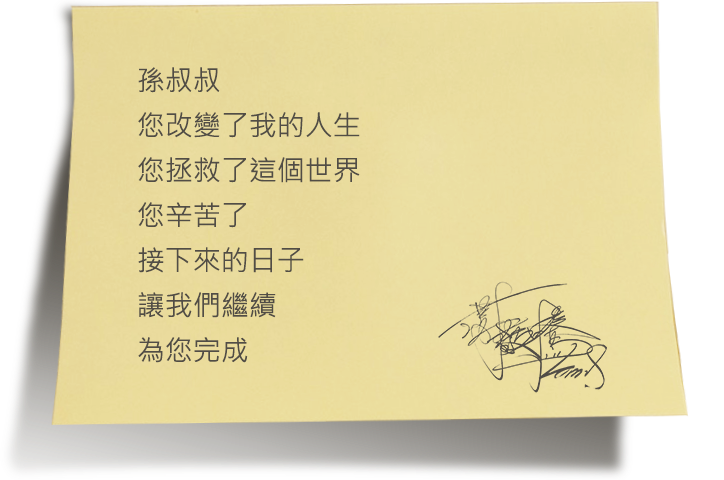 孫叔叔
您改變了我的人生
您拯救了這個世界
您辛苦了
接下來的日子
讓我們繼續
為您完成